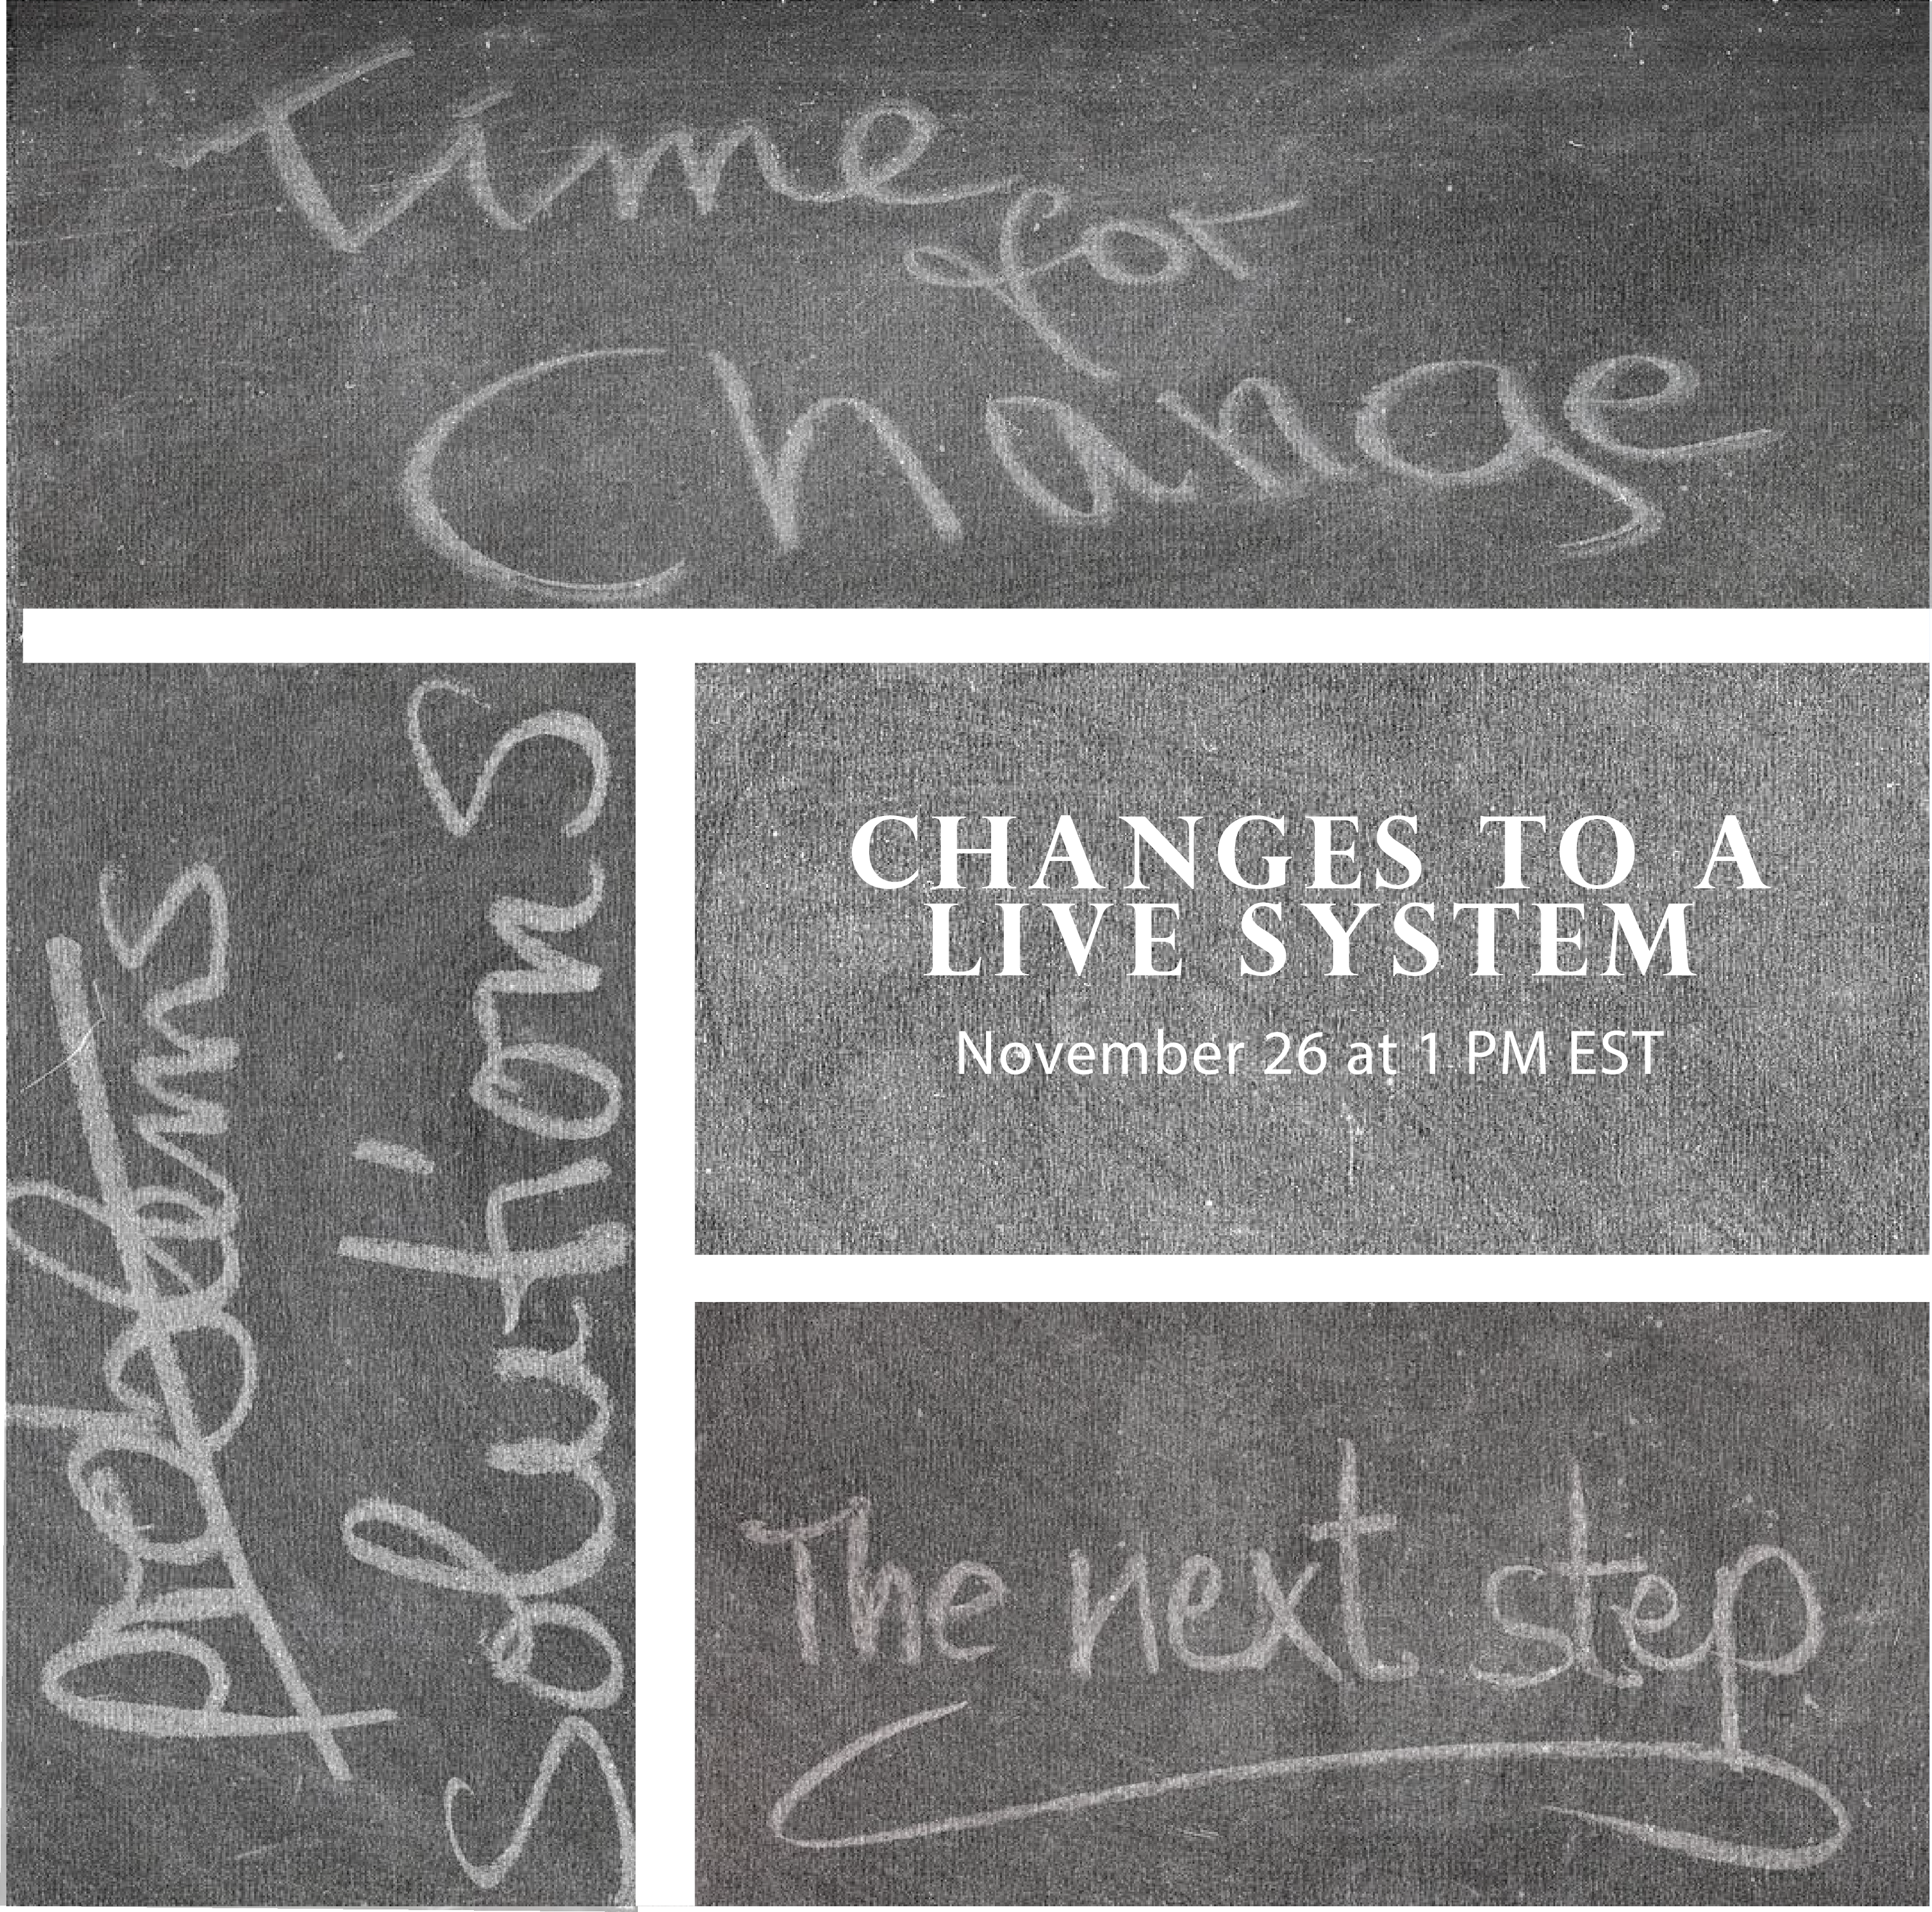 Time
for
Change
Problems
Solutions
CHANGES TO A
LIVE SYSTEM
November 26 at 1 PM EST
The next step